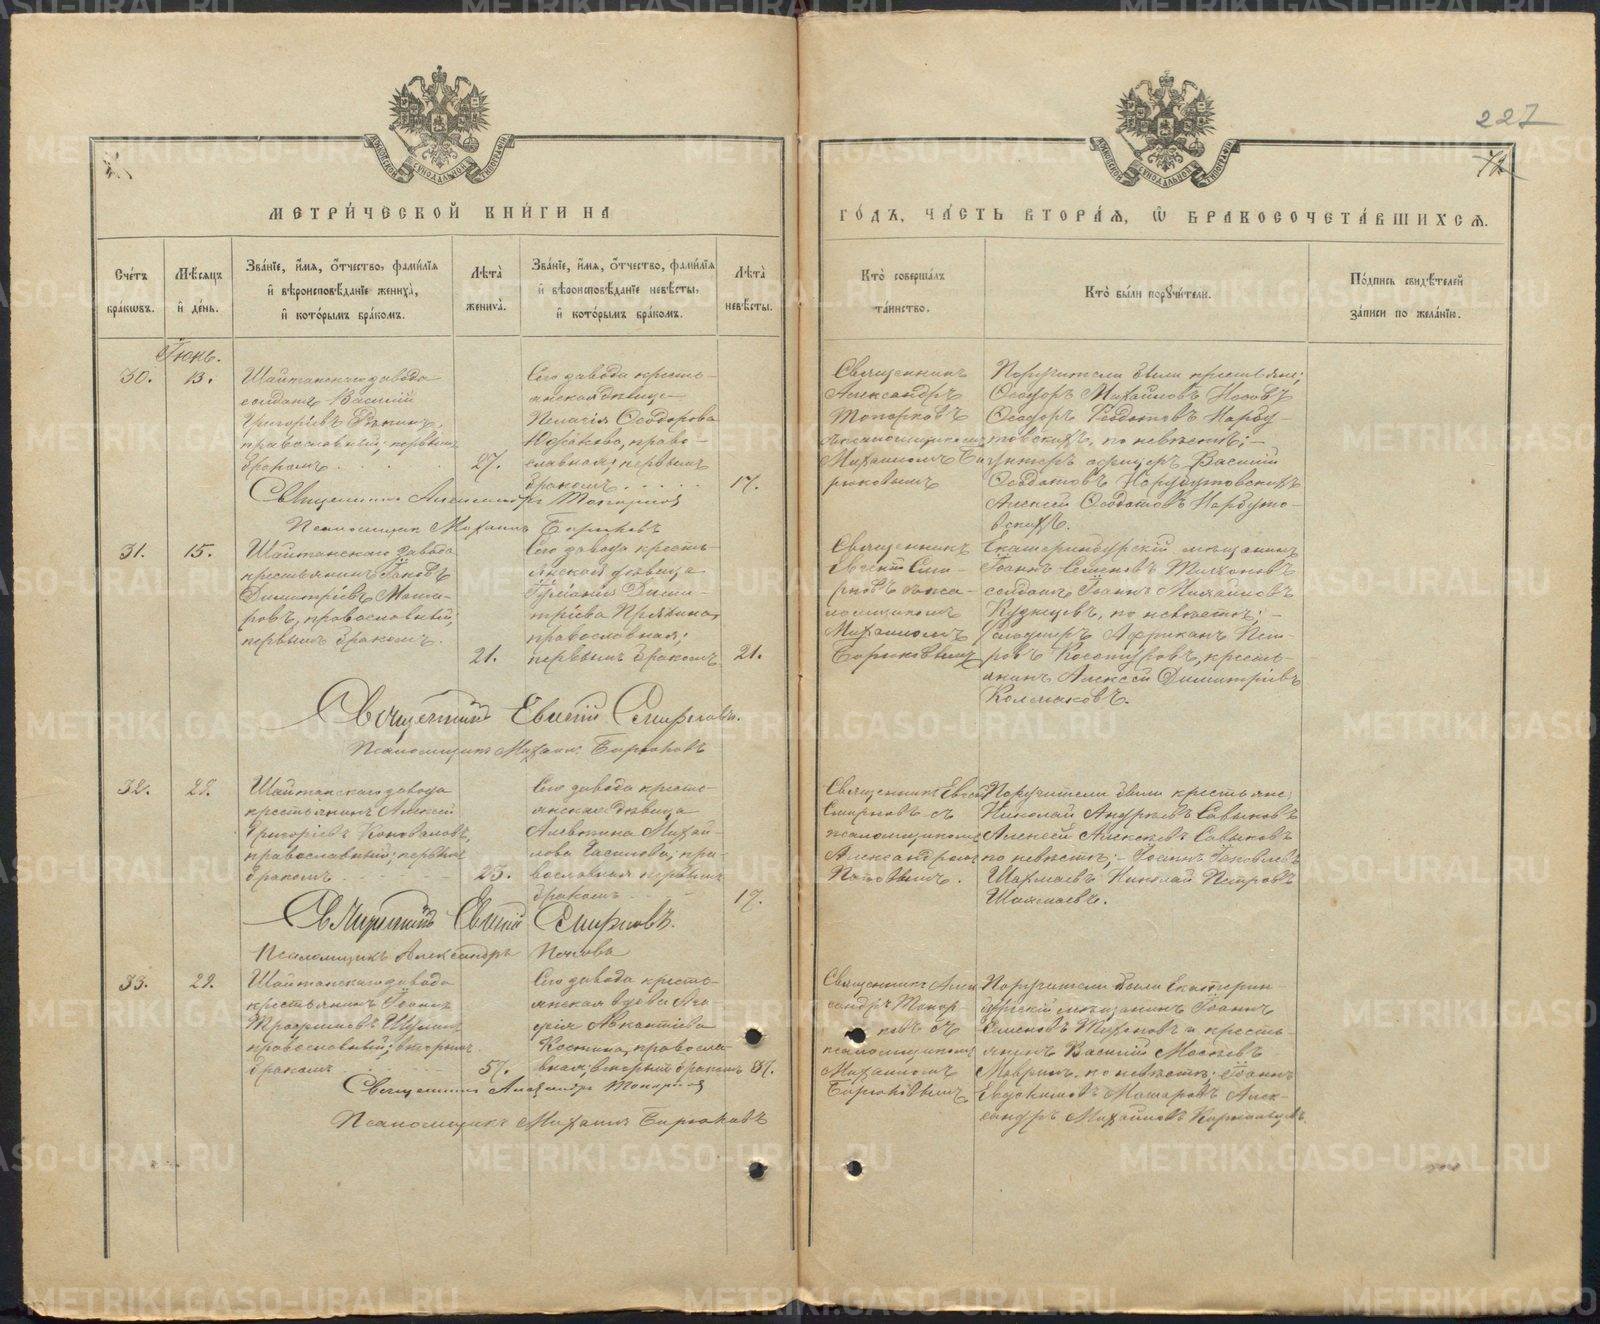 227
МЕТРИ́ЧЕСКОЙ КНИ́ГИ НА
ГО́ДЪ, ЧА́СТЬ ВТОРА́Я, Ѡ҆ БРАКОСОЧЕТА́ВШИХСЯ.
Сче́тъ бра́ковъ.
Мѣ́сяцъ и҆ де́нь.
Зва́нїе, и҆́мя, ѻ҆́тчество, фамѝлїя
и҆ вѣроисповѣ́данїе жениха̀,
и҆ кото́рымъ бра́комъ.
Лѣта̀ жениха̀.
Зва́нїе, и҆́мя, ѻ҆́тчество, фамѝлїя
и҆ вѣроисповѣ́данїе невѣ́сты,
и҆ кото́рымъ бра́комъ.
Лѣта̀ невѣ́сты.
Кто̀ соверша́лъ
та́инство.
Кто̀ бы́ли порꙋчи́тели.
По́дпись свидѣ́телей
за́писи по жела́нїю.
Іюнь.
30.
13.
Шайтанскаго завода
солдатъ Василій
Григоріевъ
православный, первымъ
бракомъ
27.
Сего завода кресть-
янская дѣвица
Пелагія Ѳеодорова
право-
славная, первымъ
бракомъ
17.
Священникъ
Александръ
Топорковъ
съ псаломщикомъ
Михаиломъ Би-
рюковымъ
Поручители были крестьяне;
Ѳеодоръ Михайловъ Носовъ
Ѳеодоръ Ѳеодотовъ Нарбу-
товскихъ, по невѣстѣ; –
Унтеръ офицеръ Василій
Ѳеодотовъ Нарбутовскихъ
Алексѣй Ѳеодотовъ Нарбуто-
вскихъ.
Священникъ Александръ Топорковъ
Псаломщикъ Михаилъ Бирюковъ
31.
15.
Шайтанскаго завода
крестьянинъ Іаковъ
Димитріевъ Маша-
ровъ, православный,
первымъ бракомъ.
21.
Сего завода кресть-
янская дѣвица
Іуліанія Дими-
тріева Пряхина,
православная;
первымъ бракомъ
21.
Священникъ
Евгеній Сми-
рновъ съ пса-
ломщикомъ
Михаиломъ
Бирюковымъ
Екатеринбургскій мѣщанинъ
Іоаннъ Семеновъ Тихоновъ
солдатъ Іоаннъ Михайловъ
Кузнецовъ, по невѣстѣ; –
Африканъ Пет-
ровъ крестья-
нинъ Алексѣй Димитріевъ
Колмаковъ.
Священникъ Евгеній Смирновъ.
Псаломщикъ Михаилъ Бирюковъ
32.
29.
Шайтанскаго завода
крестьянинъ Алексѣй
Григоріевъ Коноваловъ,
православный; первымъ
бракомъ
23.
Сего завода кресть-
янская дѣвица
Алевтина Михай-
лова пра-
вославная первымъ
бракомъ
17.
Священникъ Евгеній
Смирновъ съ
псаломщикомъ
Александромъ
Поповымъ.
Поручители были крестьяне;
Николай Андреевъ Савыковъ
Алексѣй Алексѣевъ Савыковъ
по невѣстѣ; – Іоаннъ Іаковлевъ
Николай Петровъ
Священникъ Евгеній Смирновъ.
Псаломщикъ Александръ Поповъ
33.
29.
Шайтанскаго завода
крестьянинъ Іоаннъ
православный; вторымъ
бракомъ
57.
Сего завода кресть-
янская вдова Ага-
фія
Коснина, правосла-
вная; вторымъ бракомъ
Священникъ Алек-
сандръ Топор-
ковъ съ
псаломщикомъ
Михаиломъ
Бирюковымъ
Поручители были Екатерин-
бургскій мѣщанинъ Іоаннъ
Семеновъ Тихоновъ и кресть-
янинъ Василій
по невѣстѣ: Іоаннъ
Евдокимовъ Машаровъ Алек-
сандръ Михайловъ
Священникъ Александръ Топорковъ
Псаломщикъ Михаилъ Бирюковъ
METRIKI.GASO-URAL.RU